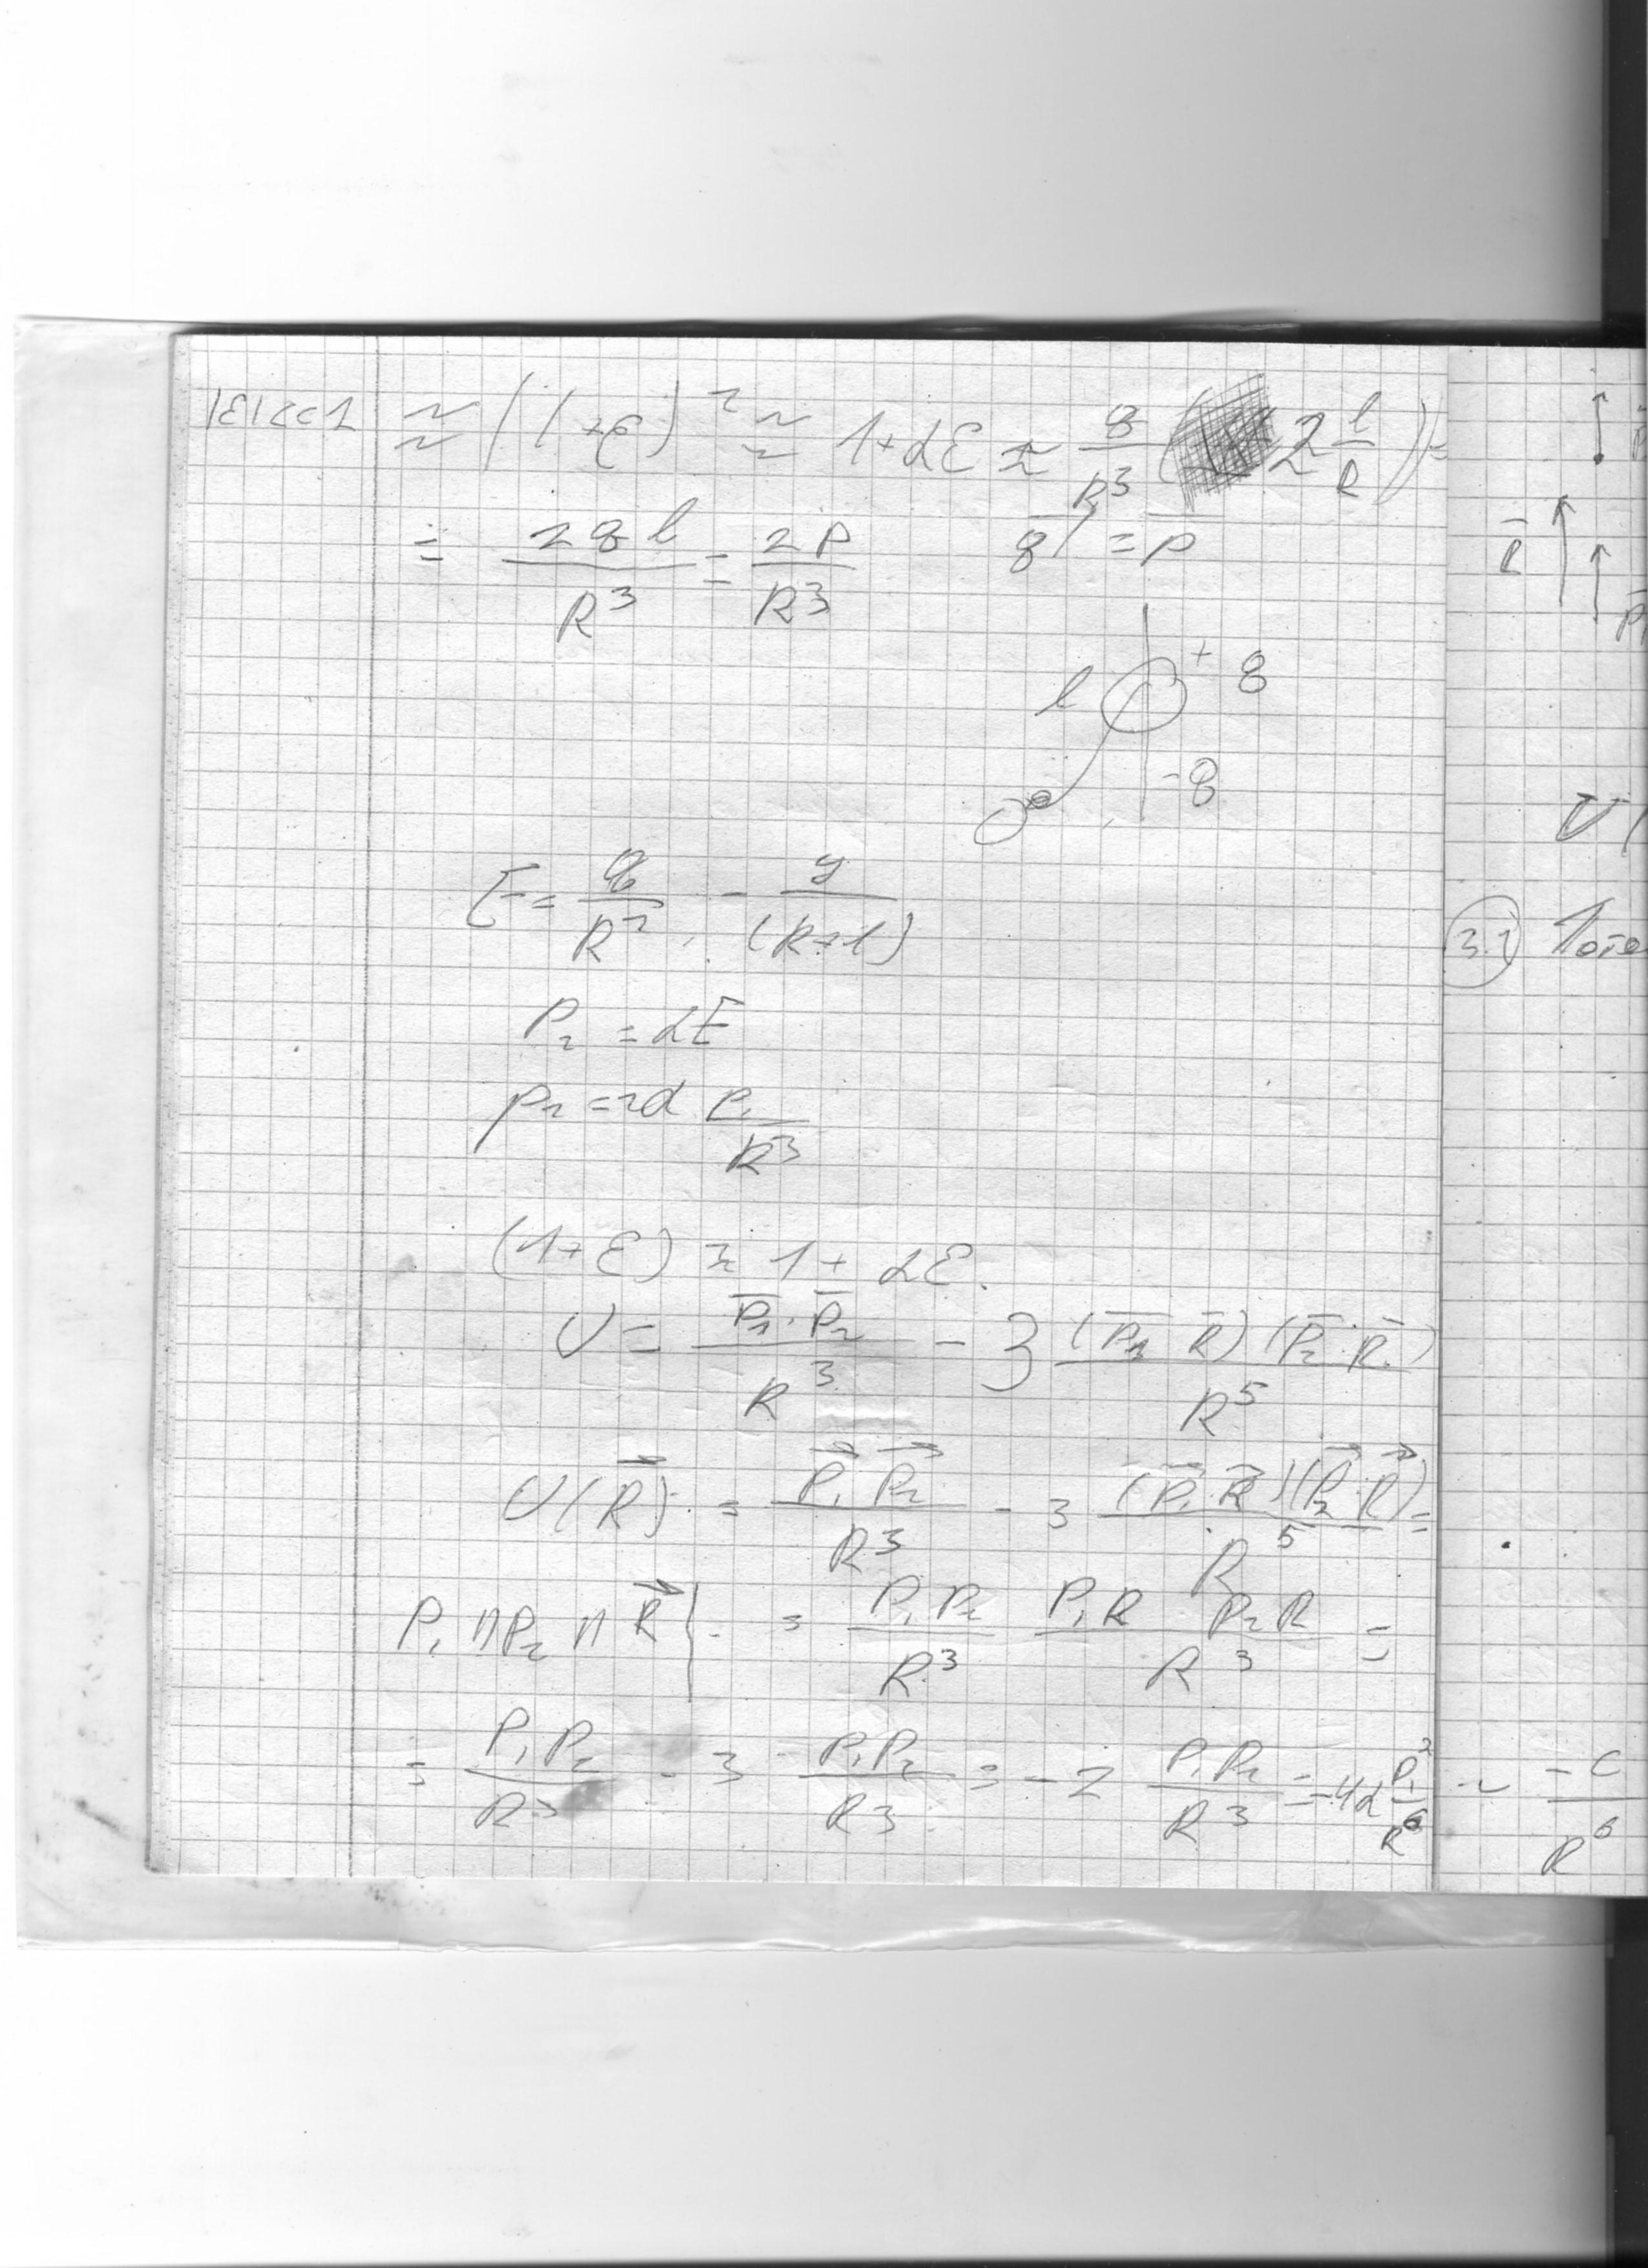 |ε|<<1 ≈ (1+ε)² ≈ 1+αε ≈ q/R³ (2 l/R) =
= 2ql/R³ = 2P/R³ ql = p
l + q
- q
E = q/R² - q/(R+l)
P₂ = αE
p₂ = 2α P₁/R³
(1+ε) ≈ 1 + αε.
U = P̄₁·P̄₂/R³ - 3 (P̄₁ R̄)(P̄₂·R̄)/R⁵
U(R⃗) = P⃗₁ P⃗₂/R³ - 3 (P⃗₁·R⃗)(P⃗₂·R⃗)/R⁵ =
P₁ ⇈ P₂ ⇈ R⃗ | = P₁P₂/R³ P₁R P₂R/R³ =
= P₁P₂/R³ - 3 P₁P₂/R³ = -2 P₁P₂/R³ = -4α P₁²/R⁶ ~ -C/R⁶
R̄
P
U(
3.1